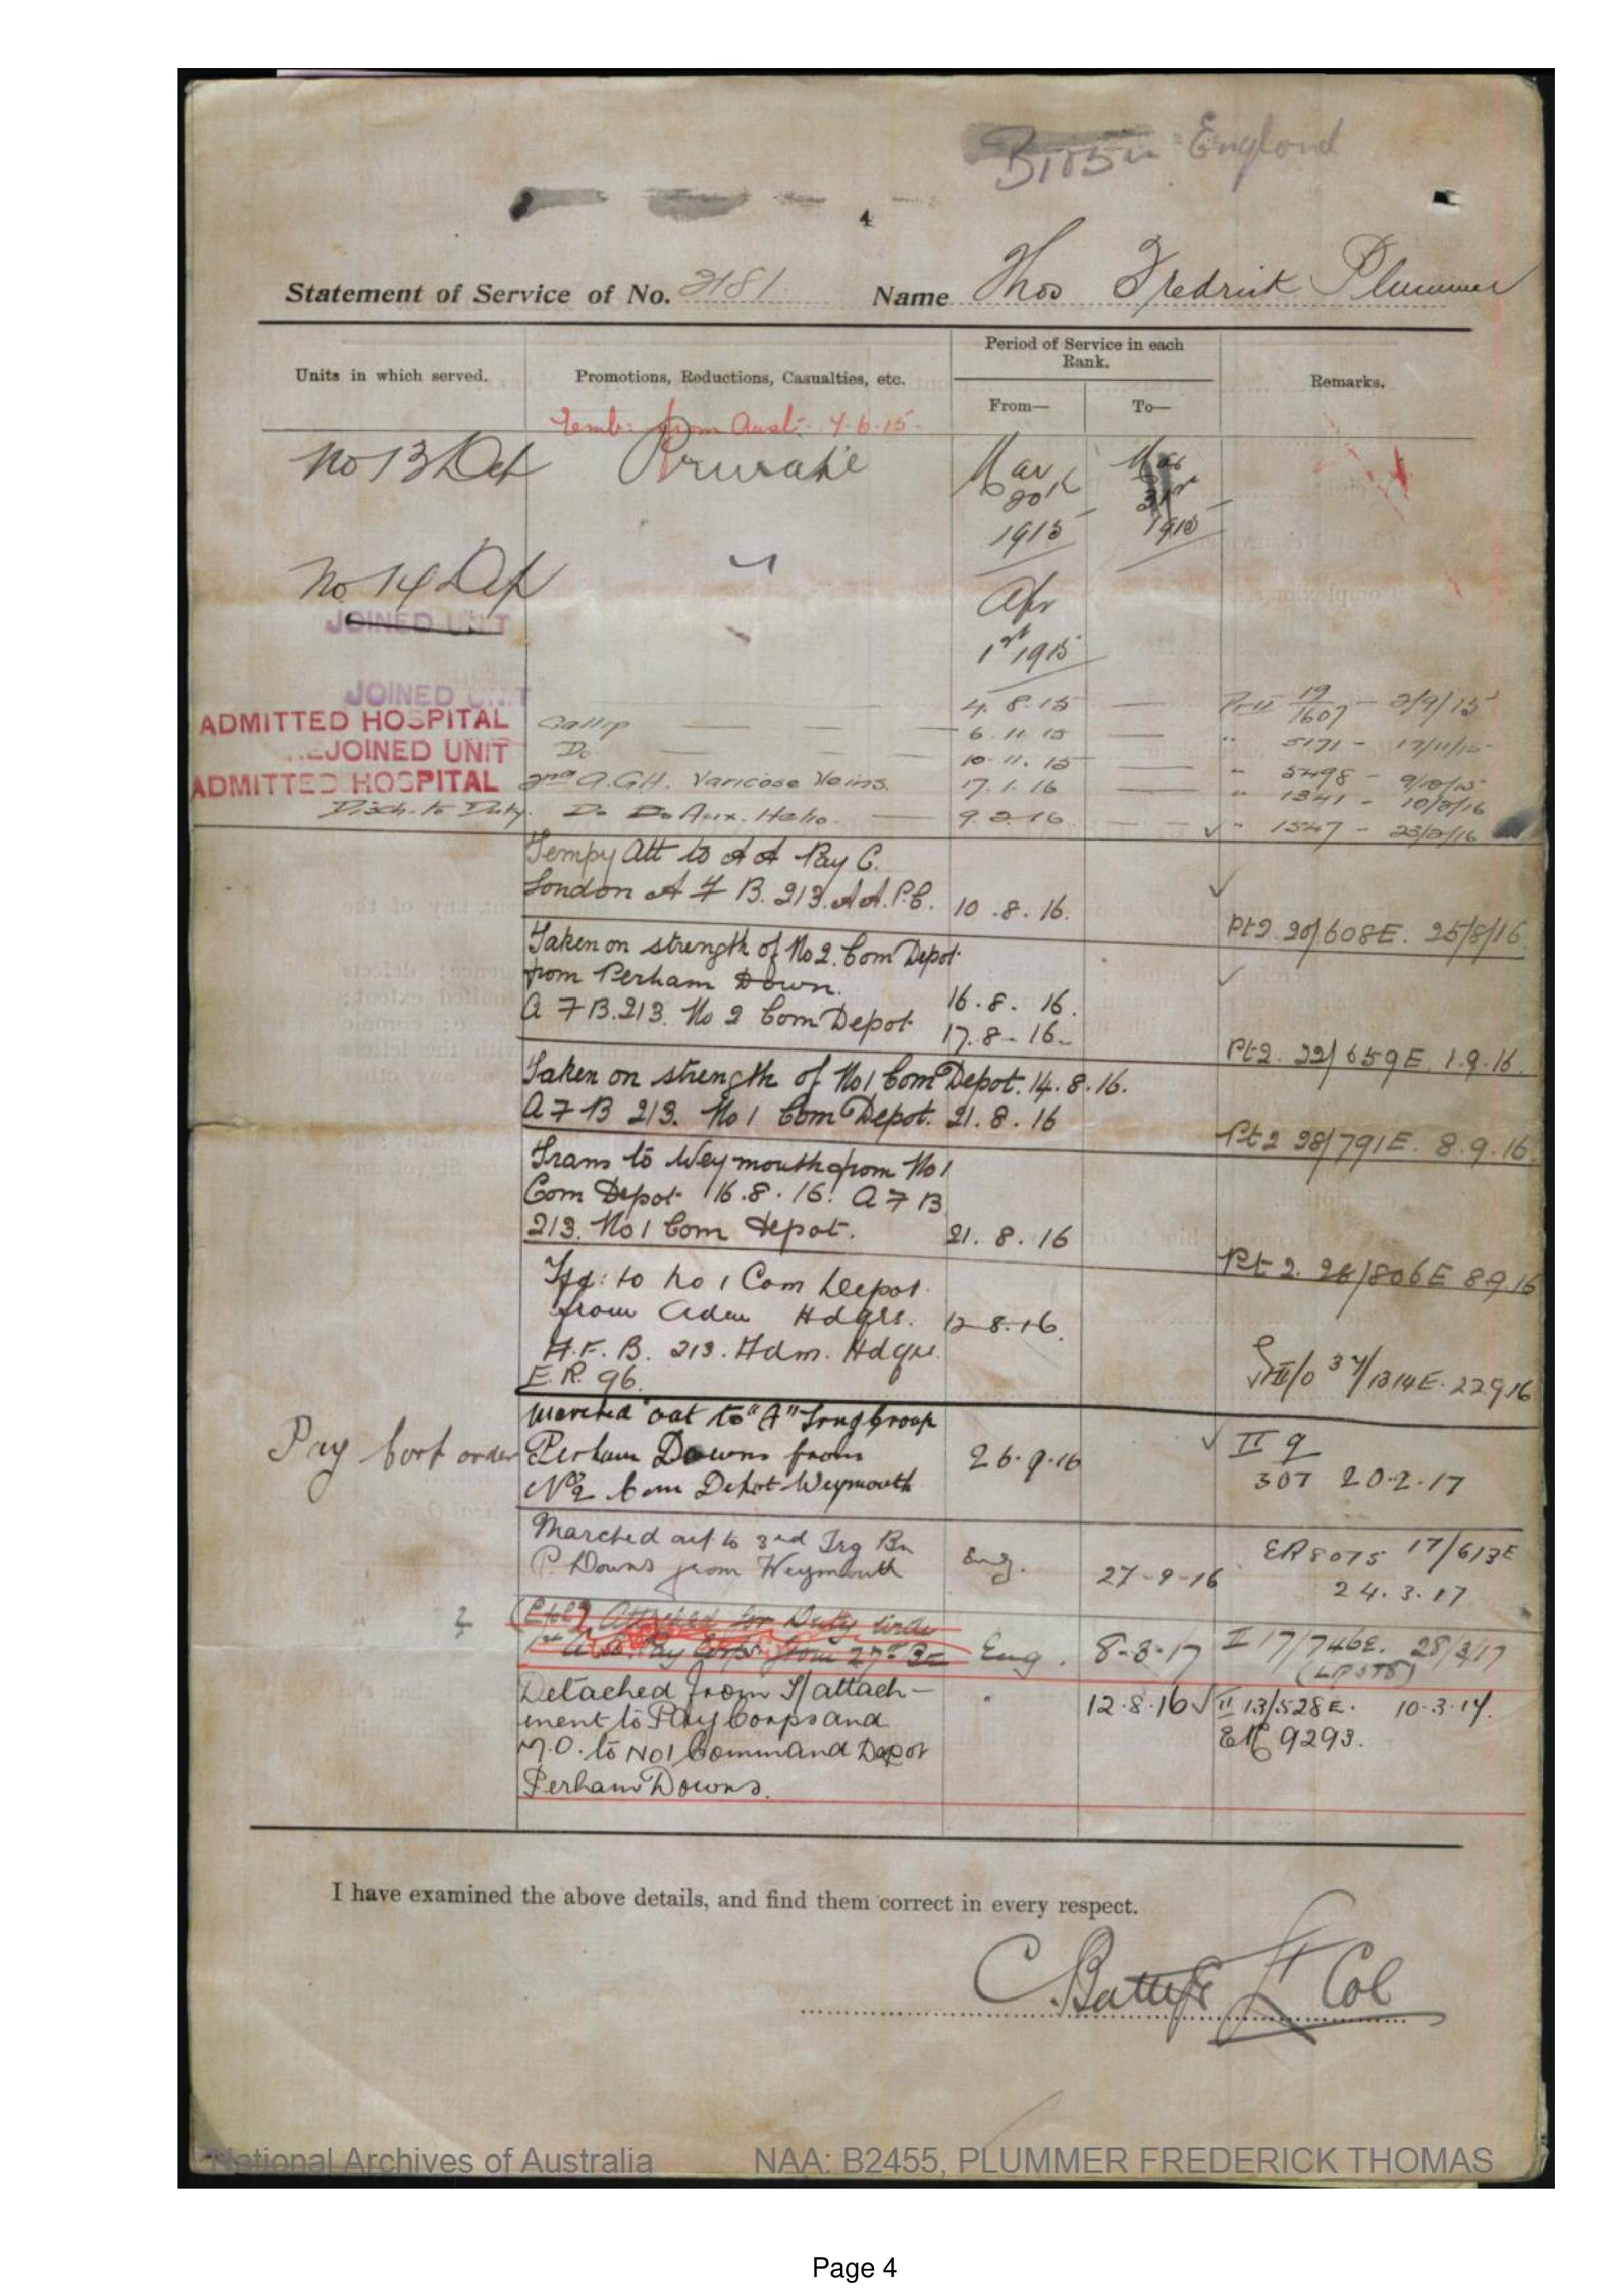 England
4
Statement of Service of No. 2181 Name Thos Fredrick Plummer
Units in which served.
Promotions, Reductions, Casualties, etc.
Period of Service in each
Rank.
From—
To—
Remarks.
Emb: from Aust: 4.6.15
No 13 Dep Private Mar
20th
1915
Mar
31st
1915
No 14 Dep
JOINED UNIT
Apr
1st 1915
JOINED UNIT 4.8.15 19/1607 - 2/9/15
ADMITTED HOSPITAL Gallip 6.11.15 " 5171 - 17/11/15
JOINED UNIT Do 10.11.15 " 5498 - 9/12/15
ADMITTED HOSPITAL 2nd A.G.H. Varicose Veins. 17.1.16 " 1341 - 10/2/16
Disch. to Duty. Do Do Aux. Helio. 9.2.16 " 1547 - 23/2/16
Tempy Att to A A Pay C.
London A F B. 213. A.A.P.C. 10.8.16.
Pt2. 20/608E. 25/8/16
Taken on strength of No 2. Com Depot
from Perham Down. 16.8.16.
A F B. 213. No 2 Com Depot 17.8-16-
Pt2. 22/659E. 1.9.16
Taken on strength of No 1 Com Depot. 14.8.16.
A F B 213. No 1 Com Depot. 21.8.16
Pt 2 28/791E. 8.9.16
Trans to Weymouth from No 1
Com Depot 16.8.16. A F B
213. No 1 Com Depot. 21.8.16
Pt 2. 28/806E 8.9.16
Tfd: to No 1 Com Depot
from Adm Hdqrs. 12-8-16.
A.F.B. 213. Adm. Hdqrs.
E.R. 96.
37/1314E. 22916
Marched out to "A" Trng Group
Pay Corps order Perham Downs from 26.9.16
No 2 Com Depot Weymouth
II 9
307 20.2.17
Marched out to 3rd Trg Bn
P. Downs from Weymouth Eng. 27-9-16
ER 8075 17/613E
24.3.17
? (Cpl) Attached for Duty with
1st Aus. Pay Corps from 27th Bn Eng. 8-3-17 II 17/746E. 28/3/17
Detached from T/attach-
ment to Pay Corps and
M.O. to No 1 Command Depot
Perham Downs.
" 12.8.16 II 13/528E. 10.3.17.
ER 9293.
I have examined the above details, and find them correct in every respect.
Lt Col
National Archives of Australia NAA: B2455, PLUMMER FREDERICK THOMAS
Page 4